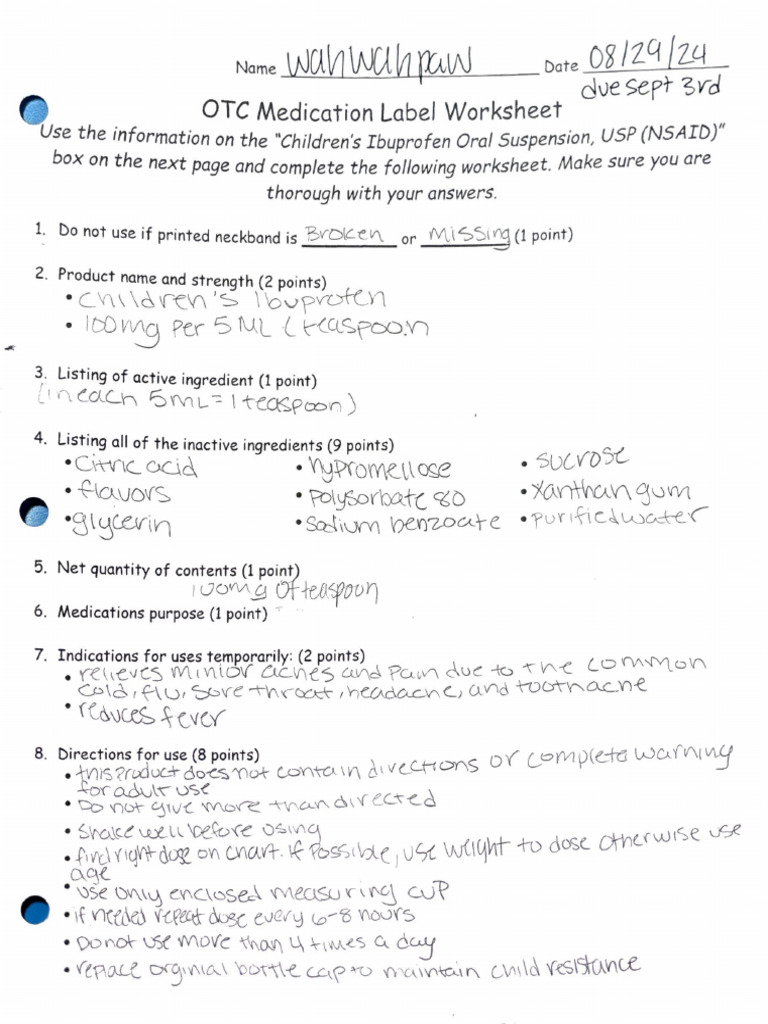 Name wahwahpaw Date 08/29/24
due sept 3rd
OTC Medication Label Worksheet
Use the information on the "Children's Ibuprofen Oral Suspension, USP (NSAID)"
box on the next page and complete the following worksheet. Make sure you are
thorough with your answers.
1. Do not use if printed neckband is Broken or Missing (1 point)
2. Product name and strength (2 points)
• children's Ibuprofen
• 100mg per 5 ML (teaspoon
3. Listing of active ingredient (1 point)
(in each 5ML = 1 teaspoon)
4. Listing all of the inactive ingredients (9 points)
• Citric acid • hypromellose • sucrose
• flavors • Polysorbate 80 • Xanthan gum
• glycerin • Sodium benzoate • purified water
5. Net quantity of contents (1 point)
100mg of teaspoon
6. Medications purpose (1 point)
7. Indications for uses temporarily: (2 points)
• relieves minior aches and pain due to the common
cold, flu, sore throat, headache, and toothache
• reduces fever
8. Directions for use (8 points)
• this product does not contain directions or complete warning
for adult use
• Do not give more than directed
• Shake well before using
• find right dose on chart. If possible, use weight to dose otherwise use
age
• use only enclosed measuring cup
• if needed repeat dose every 6-8 hours
• Do not use more than 4 times a day
• replace orginial bottle cap to maintain child resistance